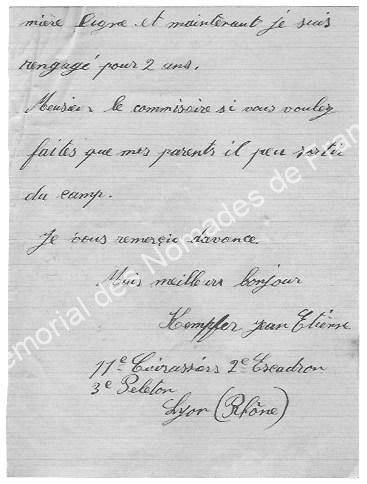 mière ligne et maintenant je suis
rengagé pour 2 ans.
Meusieur le commissoire si vous voulez
faites que mes parents il peu sortir
du camp.
Je vous remerçie davance.
Mais meilleurs bonjour
Kempfer jean Etiènne
11e Cuirassiers 2e Escadron
3e Peleton
Lyon (Rhône)
Memorial des Nomades de Fran